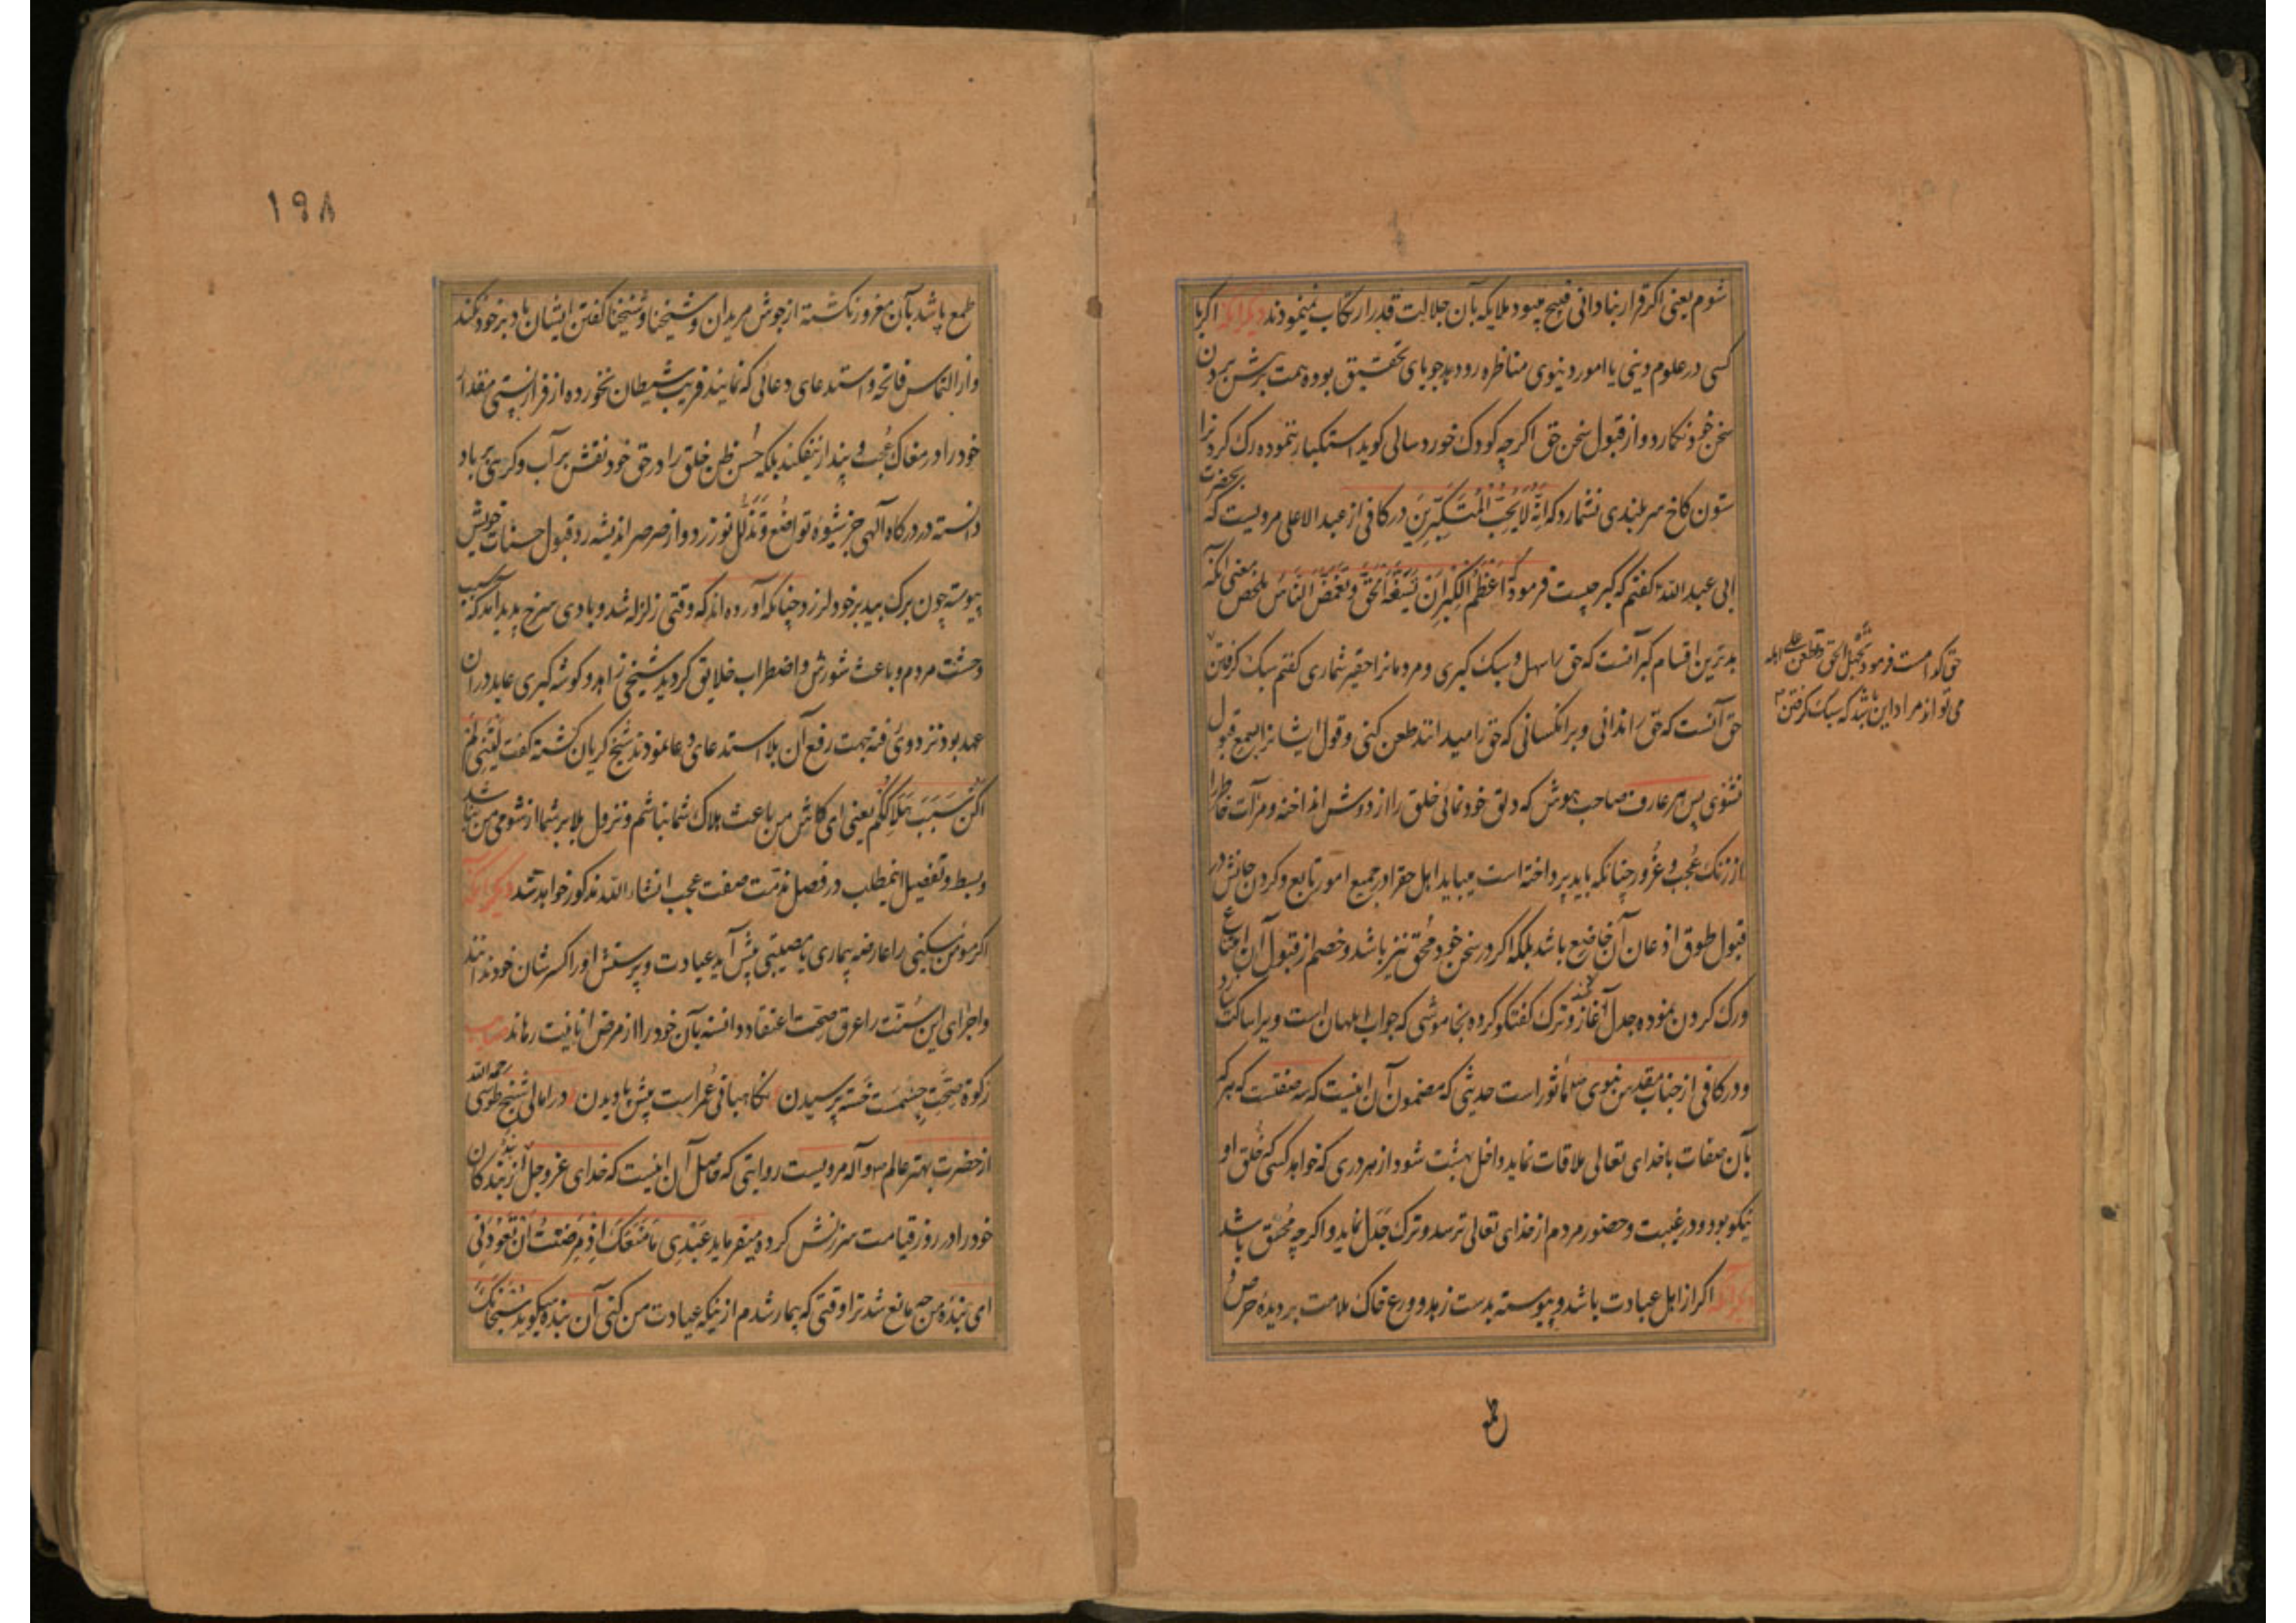 شوم یعنی اکر قرار بنادانی قبیح میبود ملایکه بآن جلالت قدر ارتکاب نمینمودند دیگر آنکه اکر با
کسی در علوم دینی یا امور دنیوی مناظره رود بد جویای تحقیق بوده همت بر پیش بردن
سخن خود نکارد و از قبول سخن حق اکرچه کودک خورد سالی کوید استکبار ننموده رک کردن را
ستون کاخ سربلندی نشمارد که انّه لا یحبّ المتکبّرین در کافی از عبد الاعلی مرویست که بحضرت
ابی عبد الله گفتم که کبر چیست فرمود که اعظم الکبر ان تسفه الحقّ و تغمص الناس ملخص معنی آنکه
بدترین اقسام کبر آنست که حق را سهل و سبک کیری و مردمانرا حقیر شماری کفتم سبک کرفتن
حق آنست که حق را ندانی و بر انکسانی که حق را میدانند طعن کنی و قول ایشانرا بسمع قبول
نشنوی پس هر عارف صاحب هوش که دلق خودنمائی خلق را از دوش انداخته و مرآت خاطر را
از زنک عجب و غرور چنانکه باید پرداخته است میباید اهل حق را در جمیع امور تابع و کردن جانش در
قبول طوق اذعان آن خاضع باشد بلکه اکر در سخن خود محقّ نیز باشد و خصم از قبول آن امتناع
ورک کردن نموده جدل آغازد ترک کفتکو کرده بخاموشی که جواب ابلهان است ویرا ساکت سازد
و در کافی از جناب مقدس نبوی ماثور است حدیثی که مضمون آن اینست که سه صفتست که هر که
بآن صفات با خدای تعالی ملاقات نماید داخل بهشت شود از هر دری که خواهد کسی که خلق او
نیکو بود و در غیبت و حضور مردم از خدای تعالی ترسد و ترک جدل نماید و اکرچه محقّ باشد
دیگر آنکه اکر از اهل عبادت باشد و پیوسته بدست زهد و ورع خاک ملامت بر دیدهٔ حرص و
حق کدامست فرمود تجهل الحق و تطعن علی اهله
می تواند مراد این باشد که سبک کرفتن
طمع
١٩٨
طمع پاشد بآن مغرور نکشته از جوش مریدان و شیخنا و شیخنا کفتن ایشان باد بر خود نکند
و از التماس فاتحه و استدعای دعائی که نمایند فریب شیطان نخورده از فراز پستی مقدار
خود را در مغاک عجب و پندار نیفکند بلکه حسن ظن خلق را در حق خود نقش بر آب و کرسی بر باد
دانسته در درکاه آلهی جز شیوهٔ تواضع و تذلل نورزد و از صرصر اندیشه رد و قبول حسنات خویش
پیوسته چون برک بید بر خود لرزد چنانکه آورده اند که وقتی زلزله شد و بادی سرخ پدید آمد که سبب
وحشت مردم و باعث شورش و اضطراب خلایق کردید شیخی زاهد و کوشه کیری عابد در آن
عهد بود نزد وی رفته بجهت رفع آن بلا استدعای دعا نمودند شیخ کریان کشته کفت لیتنی لم
اکن سبب هلاککم یعنی ای کاش من باعث هلاک شما نباشم و نزول بلا بر شما از شومی من نباشد
و بسط و تفصیل اینمطلب در فصل مذمت صفت عجب انشاء الله مذکور خواهد شد دیگر آنکه
اکر مؤمن مسکینی را عارضه بیماری یا مصیبتی پیش آید عیادت و پرسش او را کسر شان خود نداند
و اجرای این سنت را عرق صحت اعتقاد دانسته بآن خود را از مرض انانیت رهاند صاحب
زکوة صحّت جسمست خسته پرسیدن نکاهبانی عمر است پیش پا دیدن در امالی شیخ طوسی رحمه الله
از حضرت بهتر عالم ص و آله مرویست روایتی که حاصل آن اینست که خدای عز و جل از بندکان
خود را در روز قیامت سرزنش کرده میفرماید عبدی ما منعک اذ مرضت ان تعودنی
ای بندهٔ من چه مانع شد ترا وقتی که بیمار شدم از نیکه عیادت من کنی آن بنده میکوید سبحانک